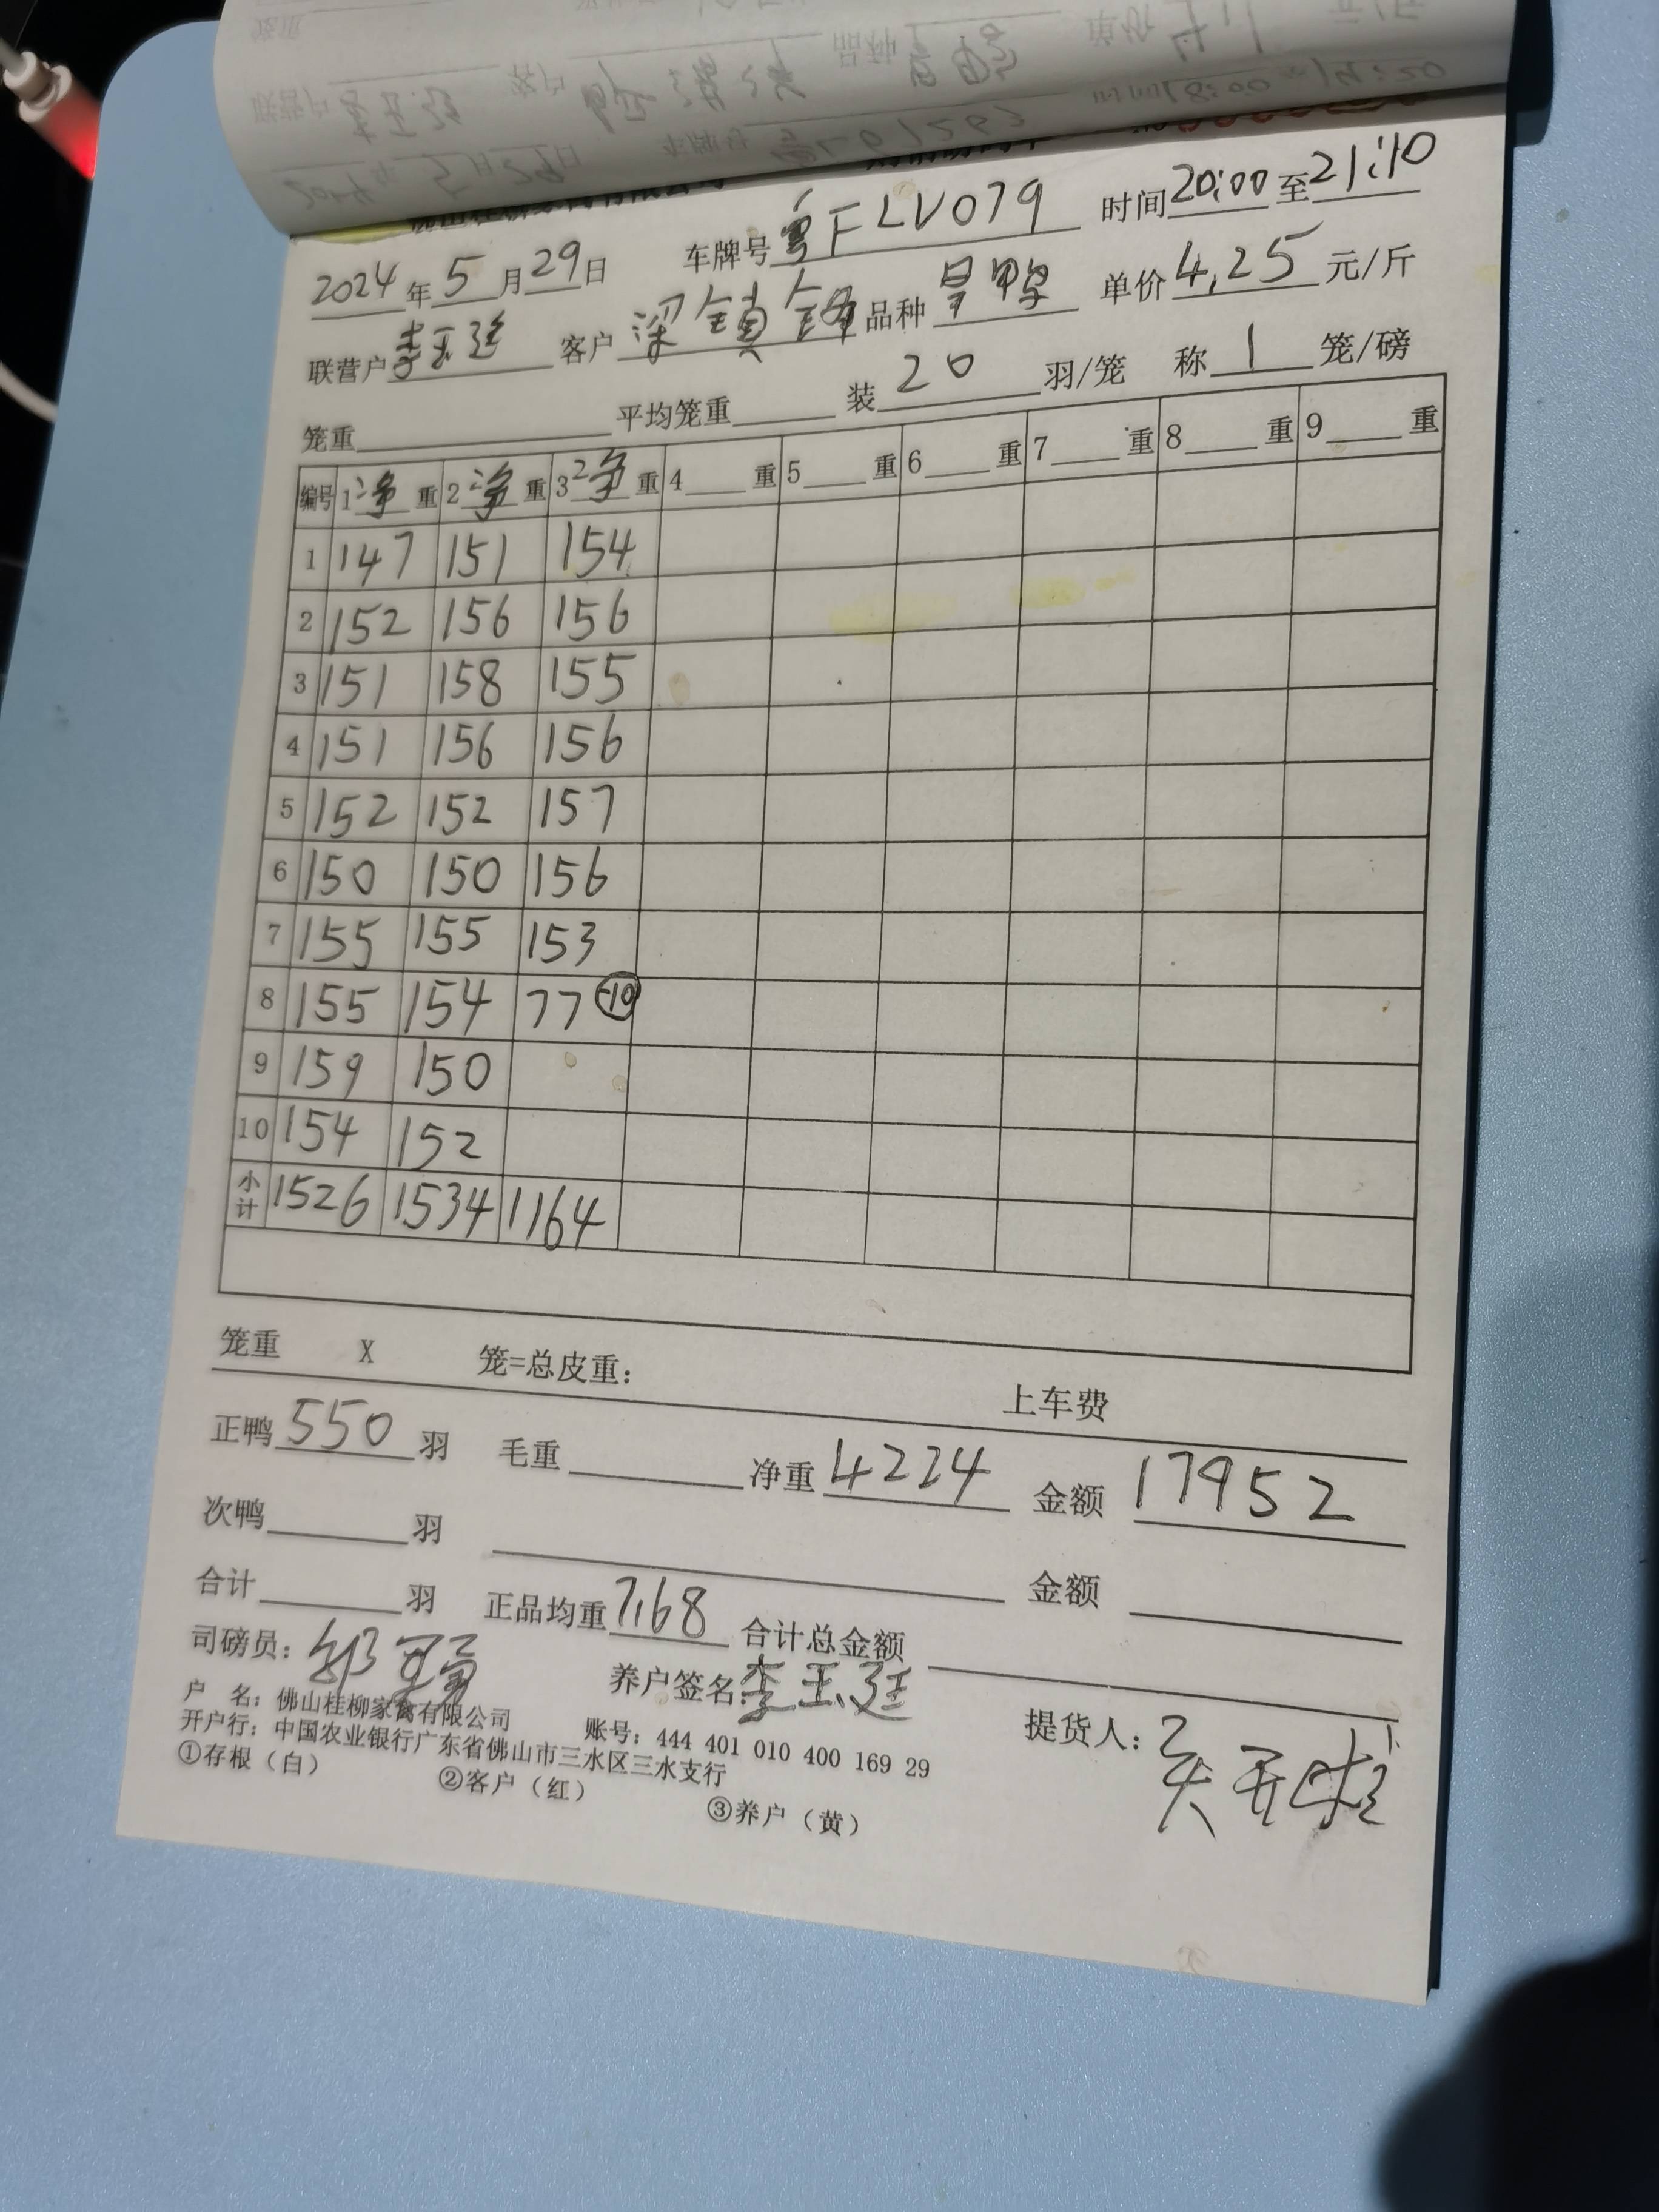 2024年5月29日 车牌号粤FLV079 时间20:00至21:10
联营户李玉廷 客户梁镇锋 品种 单价4.25元/斤
笼重 平均笼重 装20羽/笼 称1笼/磅
编号 1净重 2净重 3净重 4重 5重 6重 7重 8重 9重
1 147 151 154
2 152 156 156
3 151 158 155
4 151 156 156
5 152 152 157
6 150 150 156
7 155 155 153
8 155 154 77 -10
9 159 150
10 154 152
小计 1526 1534 1164
笼重 X 笼=总皮重: 上车费
正鸭550羽 毛重 净重4224 金额17952
次鸭 羽 金额
合计 羽 正品均重7.68 合计总金额
司磅员: 养户签名:李玉廷 提货人:
户 名: 佛山桂柳家禽有限公司 账号: 444 401 010 400 169 29
开户行: 中国农业银行广东省佛山市三水区三水支行
①存根(白) ②客户(红) ③养户(黄)